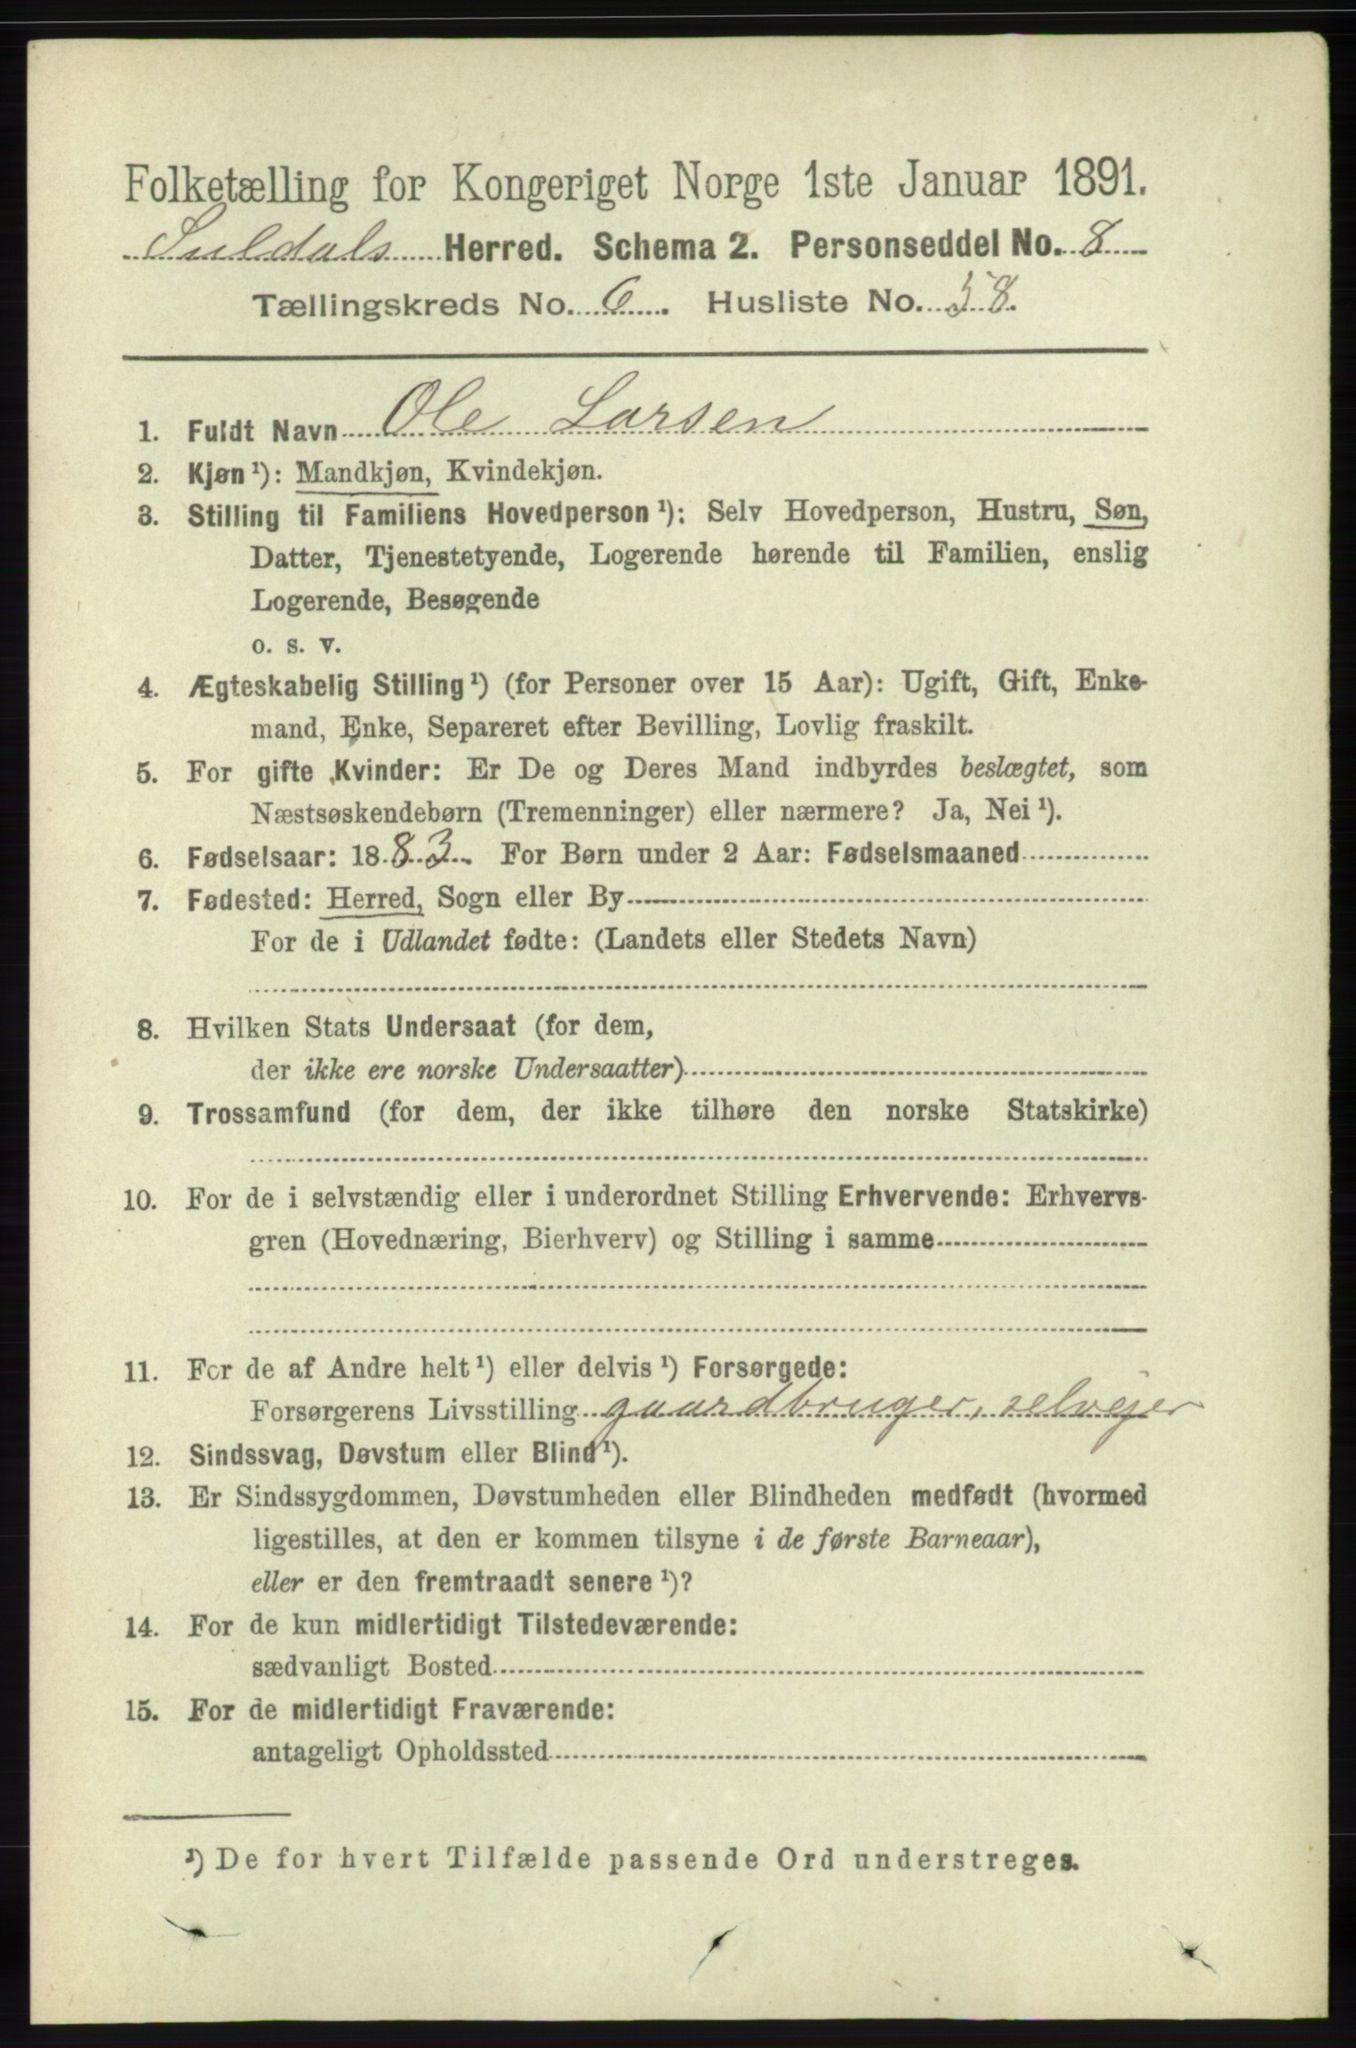 Folketælling for Kongeriget Norge 1ste Januar 1891.
Suldals Herred. Schema 2. Personseddel No. 8
Tællingskreds No. 6. Husliste No. 58.
1. Fuldt Navn Ole Larsen
2. Kjøn ¹): Mandkjøn, Kvindekjøn.
3. Stilling til Familiens Hovedperson ¹): Selv Hovedperson, Hustru, Søn,
Datter, Tjenestetyende, Logerende hørende til Familien, enslig
Logerende, Besøgende
o. s. v.
4. Ægteskabelig Stilling ¹) (for Personer over 15 Aar): Ugift, Gift, Enke-
mand, Enke, Separeret efter Bevilling, Lovlig fraskilt.
5. For gifte Kvinder: Er De og Deres Mand indbyrdes beslægtet, som
Næstsøskendebørn (Tremenninger) eller nærmere? Ja, Nei ¹).
6. Fødselsaar: 1883. For Børn under 2 Aar: Fødselsmaaned
7. Fødested: Herred, Sogn eller By
For de i Udlandet fødte: (Landets eller Stedets Navn)
8. Hvilken Stats Undersaat (for dem,
der ikke ere norske Undersaatter)
9. Trossamfund (for dem, der ikke tilhøre den norske Statskirke)
10. For de i selvstændig eller i underordnet Stilling Erhvervende: Erhvervs-
gren (Hovednæring, Bierhverv) og Stilling i samme
11. For de af Andre helt ¹) eller delvis ¹) Forsørgede:
Forsørgerens Livsstilling gaardbruger, selvejer
12. Sindssvag, Døvstum eller Blind ¹).
13. Er Sindssygdommen, Døvstumheden eller Blindheden medfødt (hvormed
ligestilles, at den er kommen tilsyne i de første Barneaar),
eller er den fremtraadt senere ¹)?
14. For de kun midlertidigt Tilstedeværende:
sædvanligt Bosted
15. For de midlertidigt Fraværende:
antageligt Opholdssted
¹) De for hvert Tilfælde passende Ord understreges.